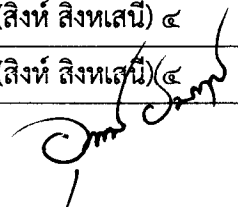 (สิงห์ สิงหเสนี) ๔
(สิงห์ สิงหเสนี) ๔